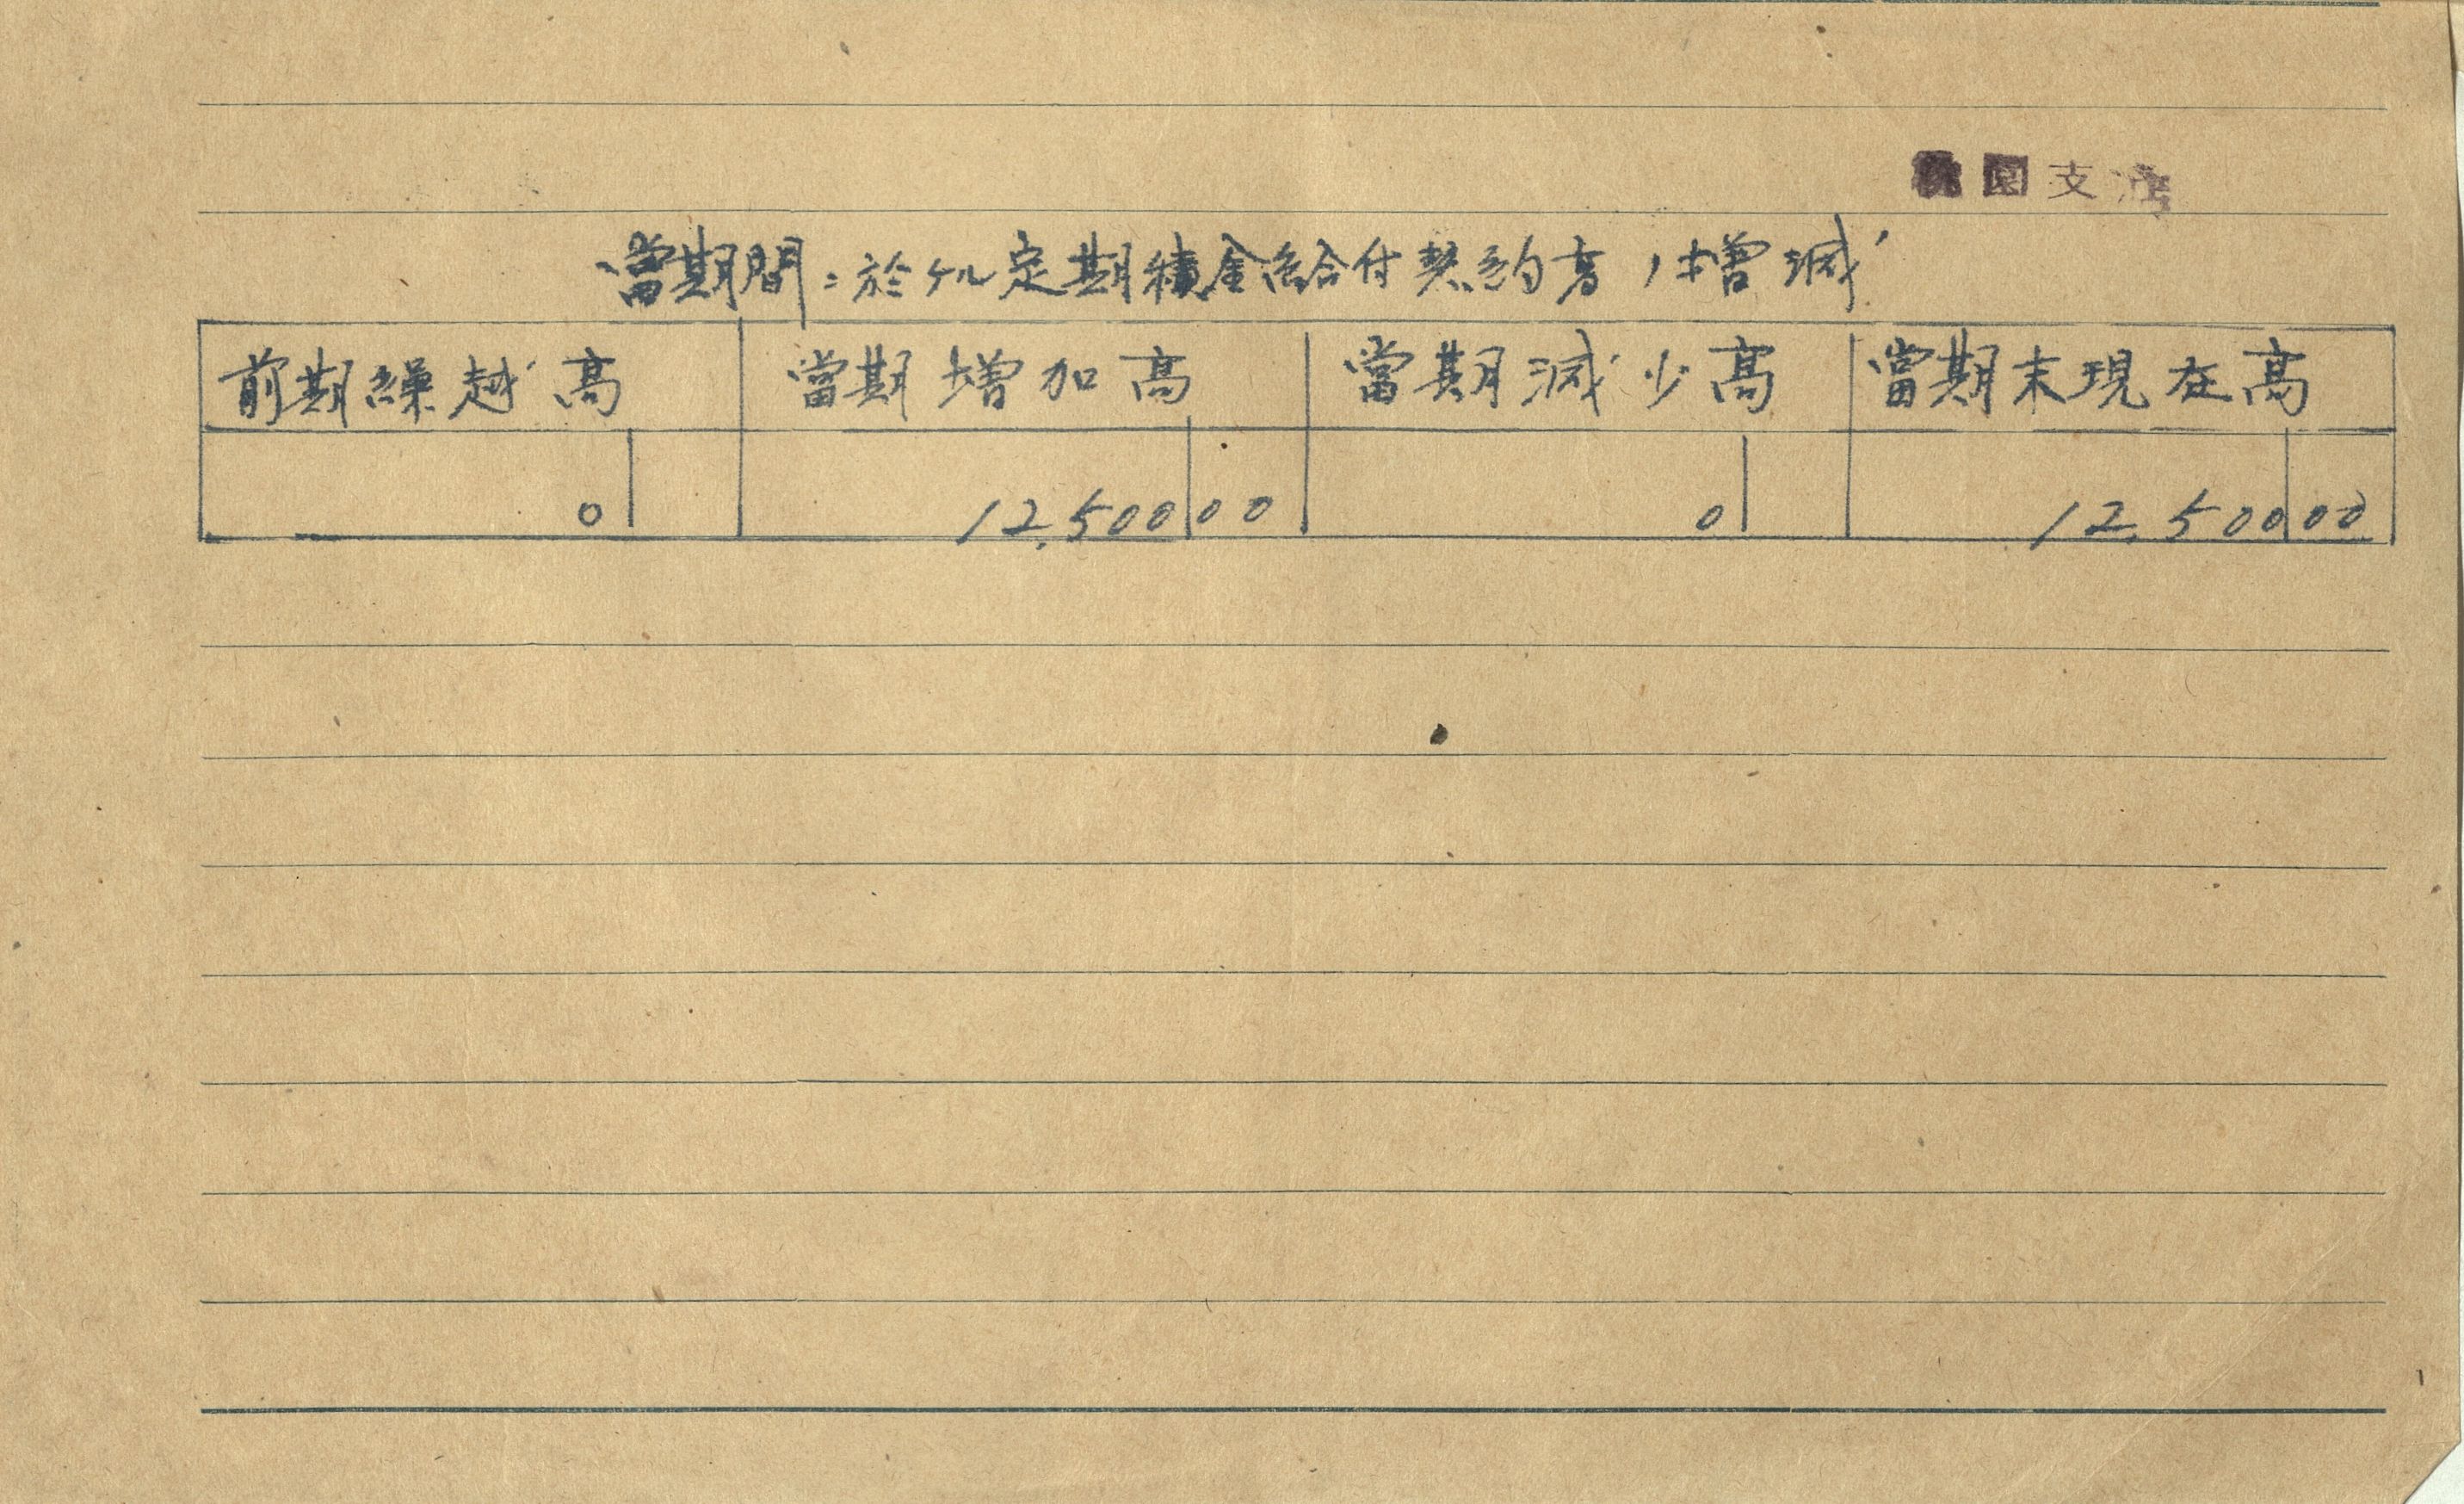 桃園支店
當期間ニ於ケル定期積金給付契約高ノ增減
前期繰越高 當期增加高 當期減少高 當期末現在高
0 12,500 00 0 12,500 00